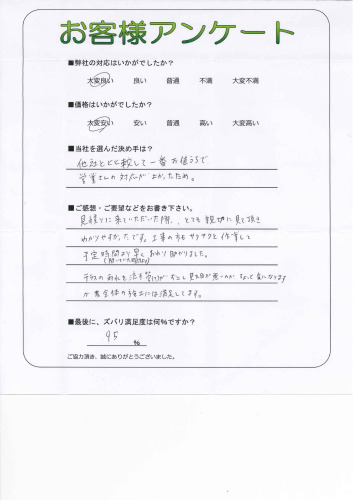 お客様アンケート
■弊社の対応はいかがでしたか?
大変良い 良い 普通 不満 大変不満
■価格はいかがでしたか?
大変安い 安い 普通 高い 大変高い
■当社を選んだ決め手は?
他社と比較して一番お値うちで
営業さんの対応が よかったため。
■ご感想・ご要望などをお書き下さい。
見積りに来ていただいた際、とても親切に見て頂き
わかりやすかったです。工事の方もサクサクと作業して
予定時間より早くおわり助かりました。
テラスの
が 全体の 満足してます。
■最後に、ズバリ満足度は何%ですか?
95 %
ご協力頂き、誠にありがとうございました。